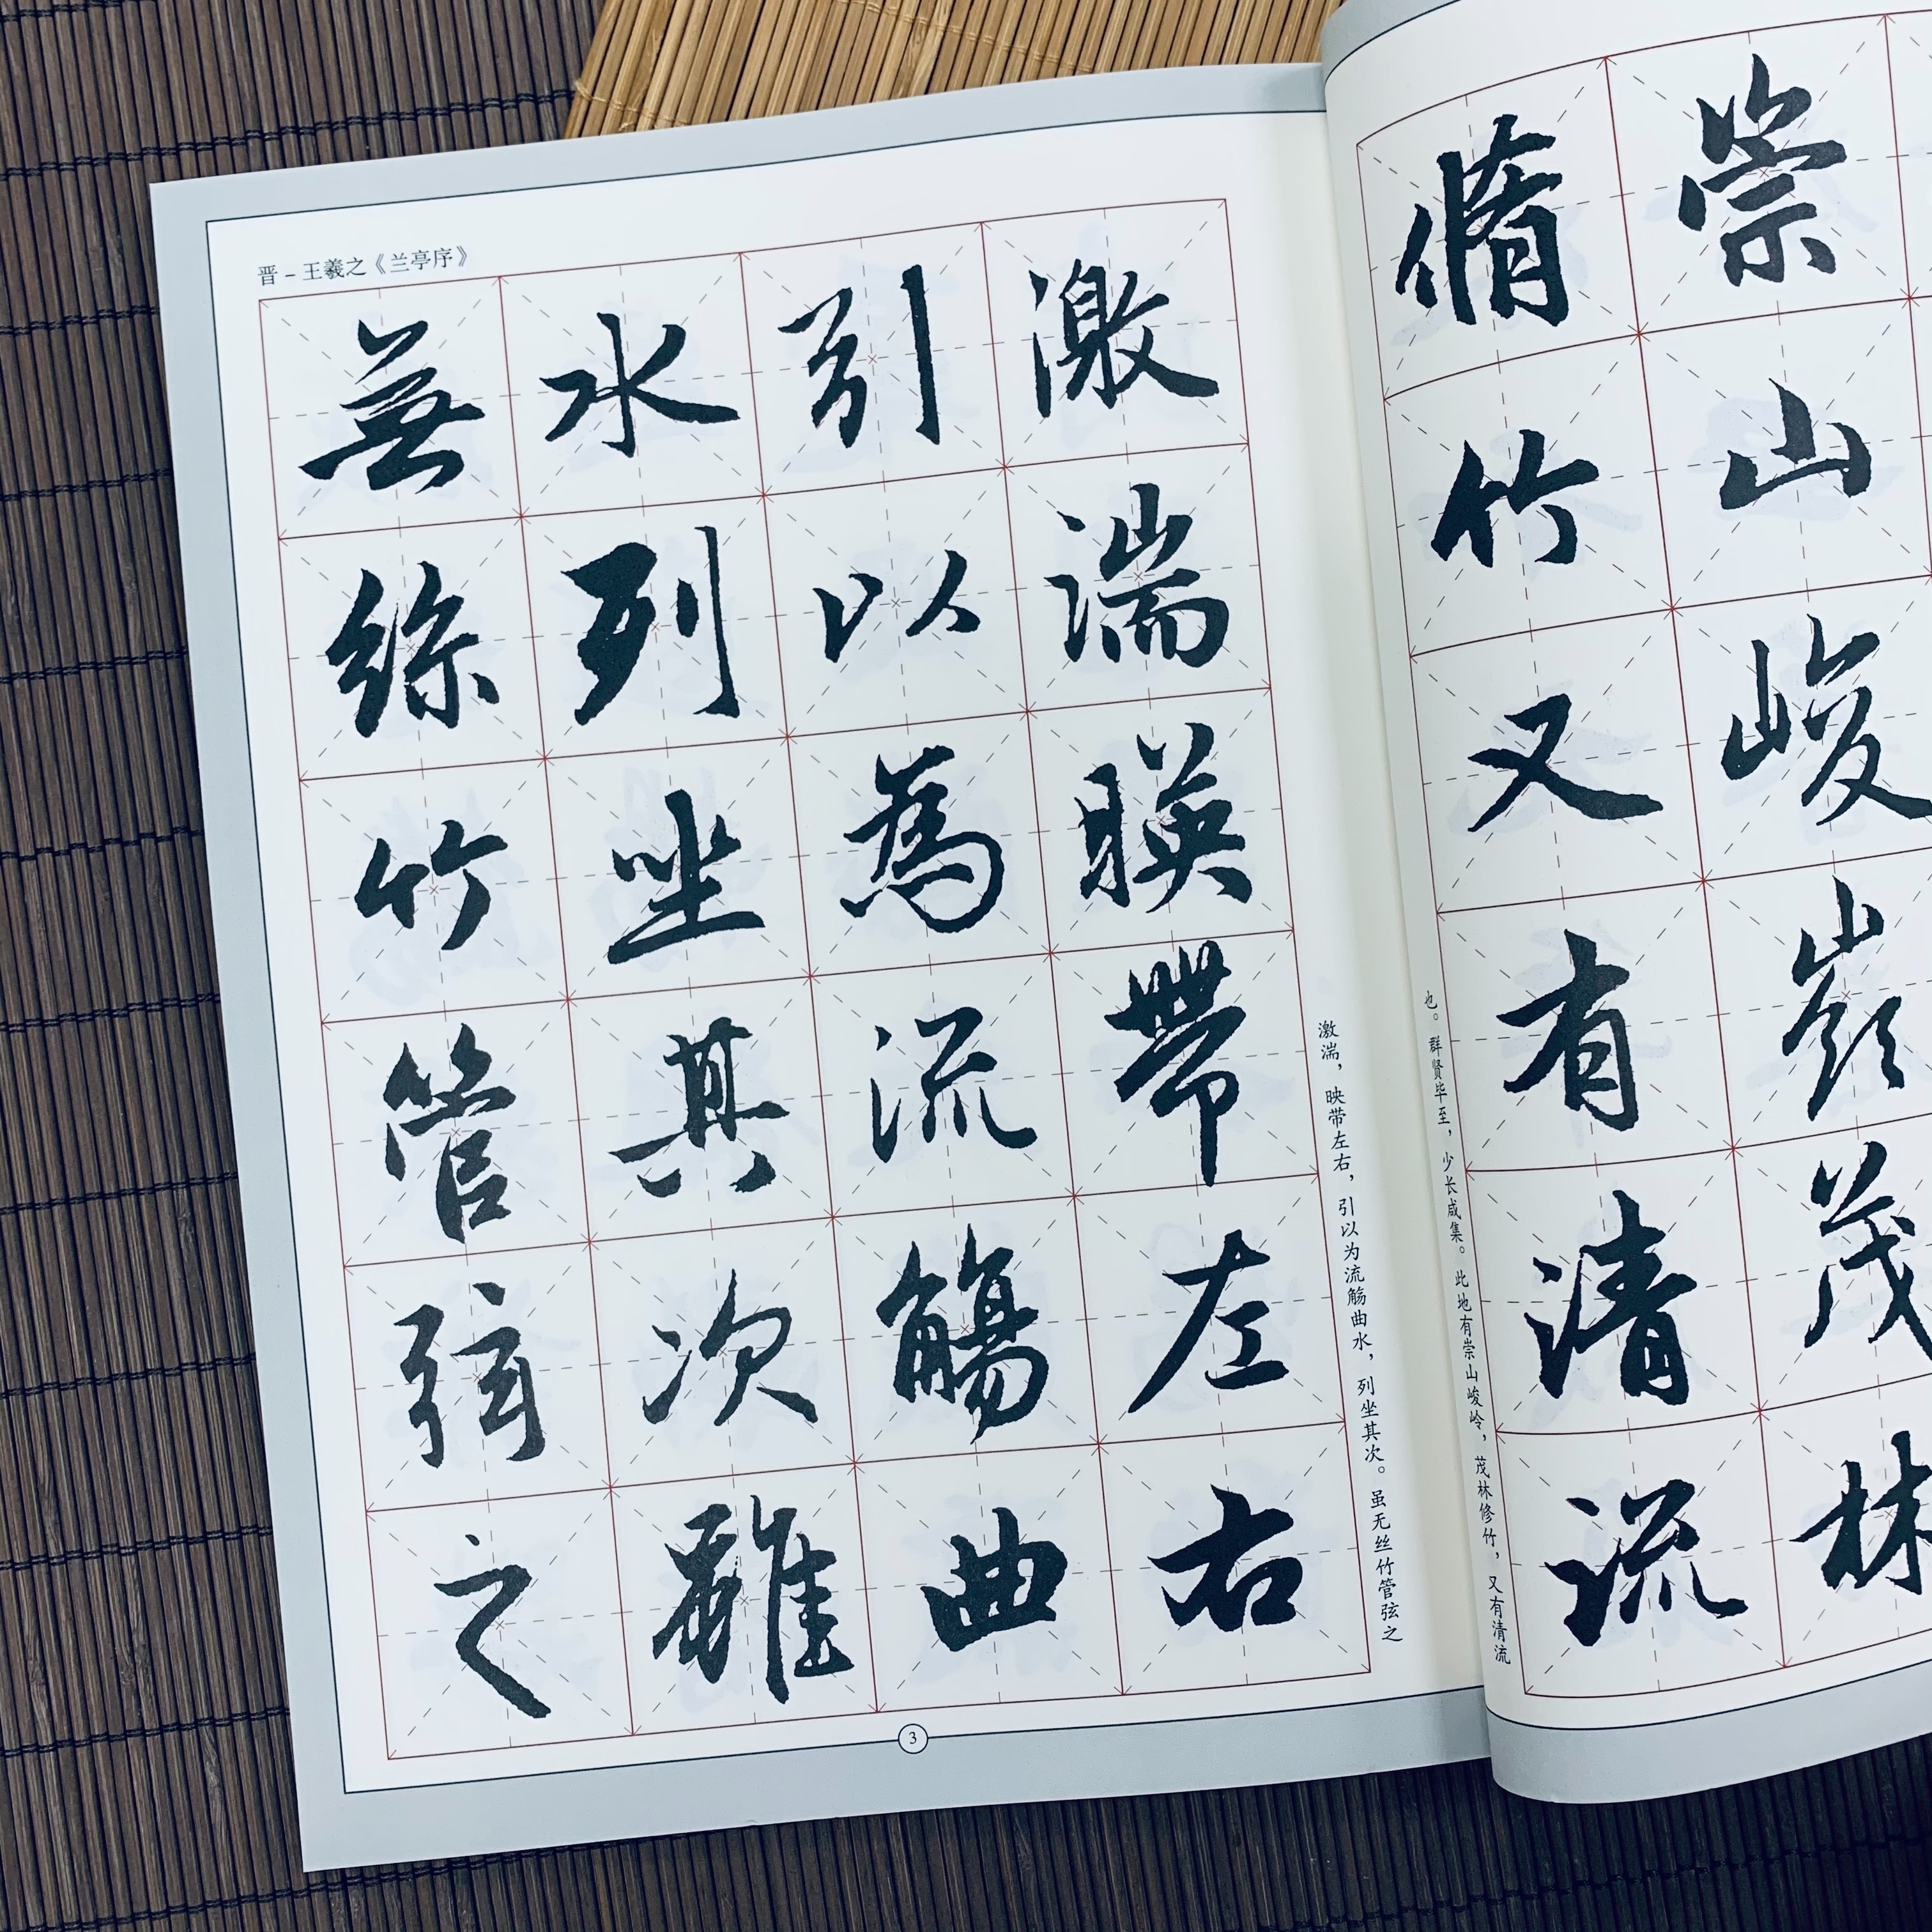 崇山峻嶺茂林
脩竹又有清流
也。群贤毕至，少长咸集。此地有崇山峻岭，茂林修竹，又有清流
晋－王羲之《兰亭序》
激湍暎帶左右
引以為流觴曲
水列坐其次雖
無絲竹管弦之
激湍，映带左右，引以为流觞曲水，列坐其次。虽无丝竹管弦之
3